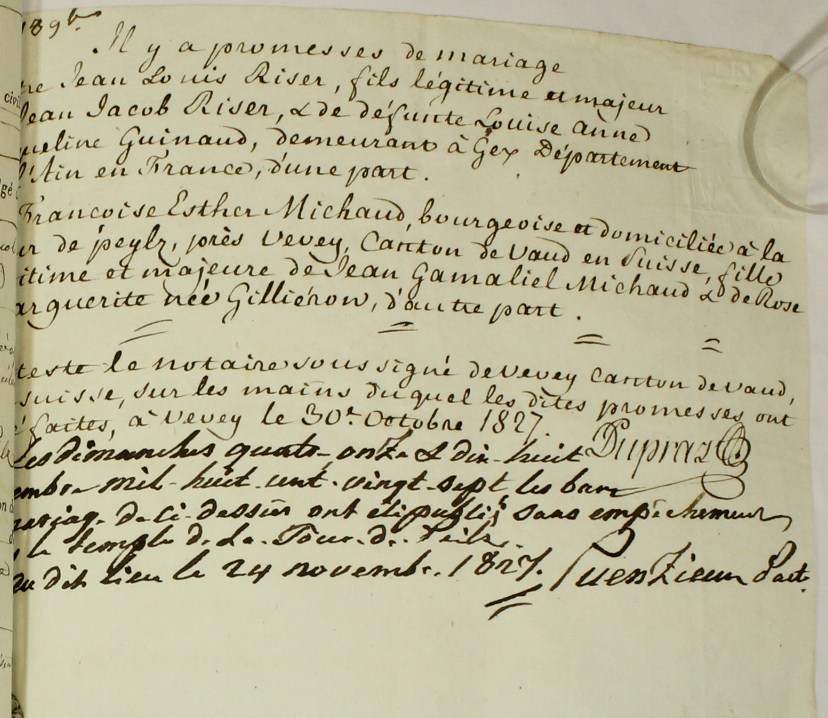 189bis
Il y a promesses de mariage
tre Jean Louis Riser, fils légitime et majeur
Jean Jacob Riser, & de défunte Louise Anne
queline Guinand, demeurant à Gex Département
l'Ain en France, d'une part.
Francoise Esther Michaud, bourgeoise et domiciliée à la
ur de peylz, près Vevey, Canton de Vaud en Suisse, fille
itime et majeure de Jean Gamaliel Michaud & de Rose
arguerite née Gilliéron, d'autre part.
teste le notaire soussigné de Vevey Canton de Vaud,
suisse, sur les mains duquel les dites promesses ont
é faites, à Vevey le 30e Octobre 1827.
Dupraz
Les dimanches quatre, onze & dix-huit
embre mil-huit-cent-vingt-sept les bans
mariage de ci-dessus ont été publiés sans empêchement
le temple de La Tour-de-Peilz.
du dit lieu le 24 novembre 1827.